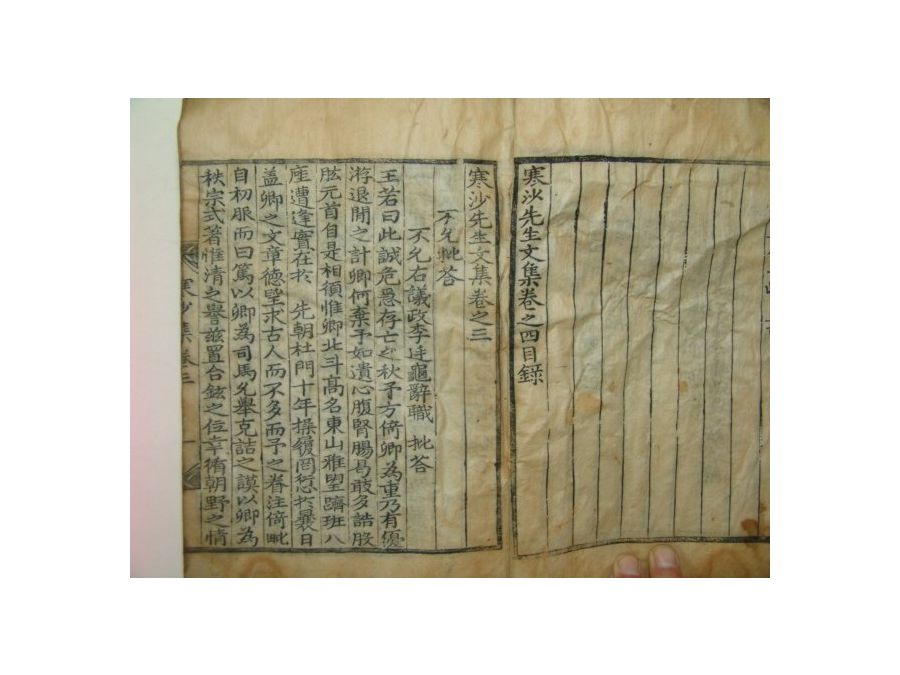 寒沙先生文集卷之四目録
寒沙先生文集卷之三
不允批答
不允右議政李廷龜辭職 批答
王若曰此誠危急存亡之秋予方倚卿為重乃有優
游退閒之計卿何棄予如遺心腹腎腸曷敢多誥股
肱元首自是相須惟卿北斗高名東山雅望躋班八
座遭逢實在於 先朝杜門十年操履罔愆於曩日
盖卿之文章德望求古人而不多而予之眷注倚毗
自初服而曰篤以卿為司馬允舉克詰之謨以卿為
秩宗式著惟清之譽玆置台鉉之位幸循朝野之情
寒沙集卷三